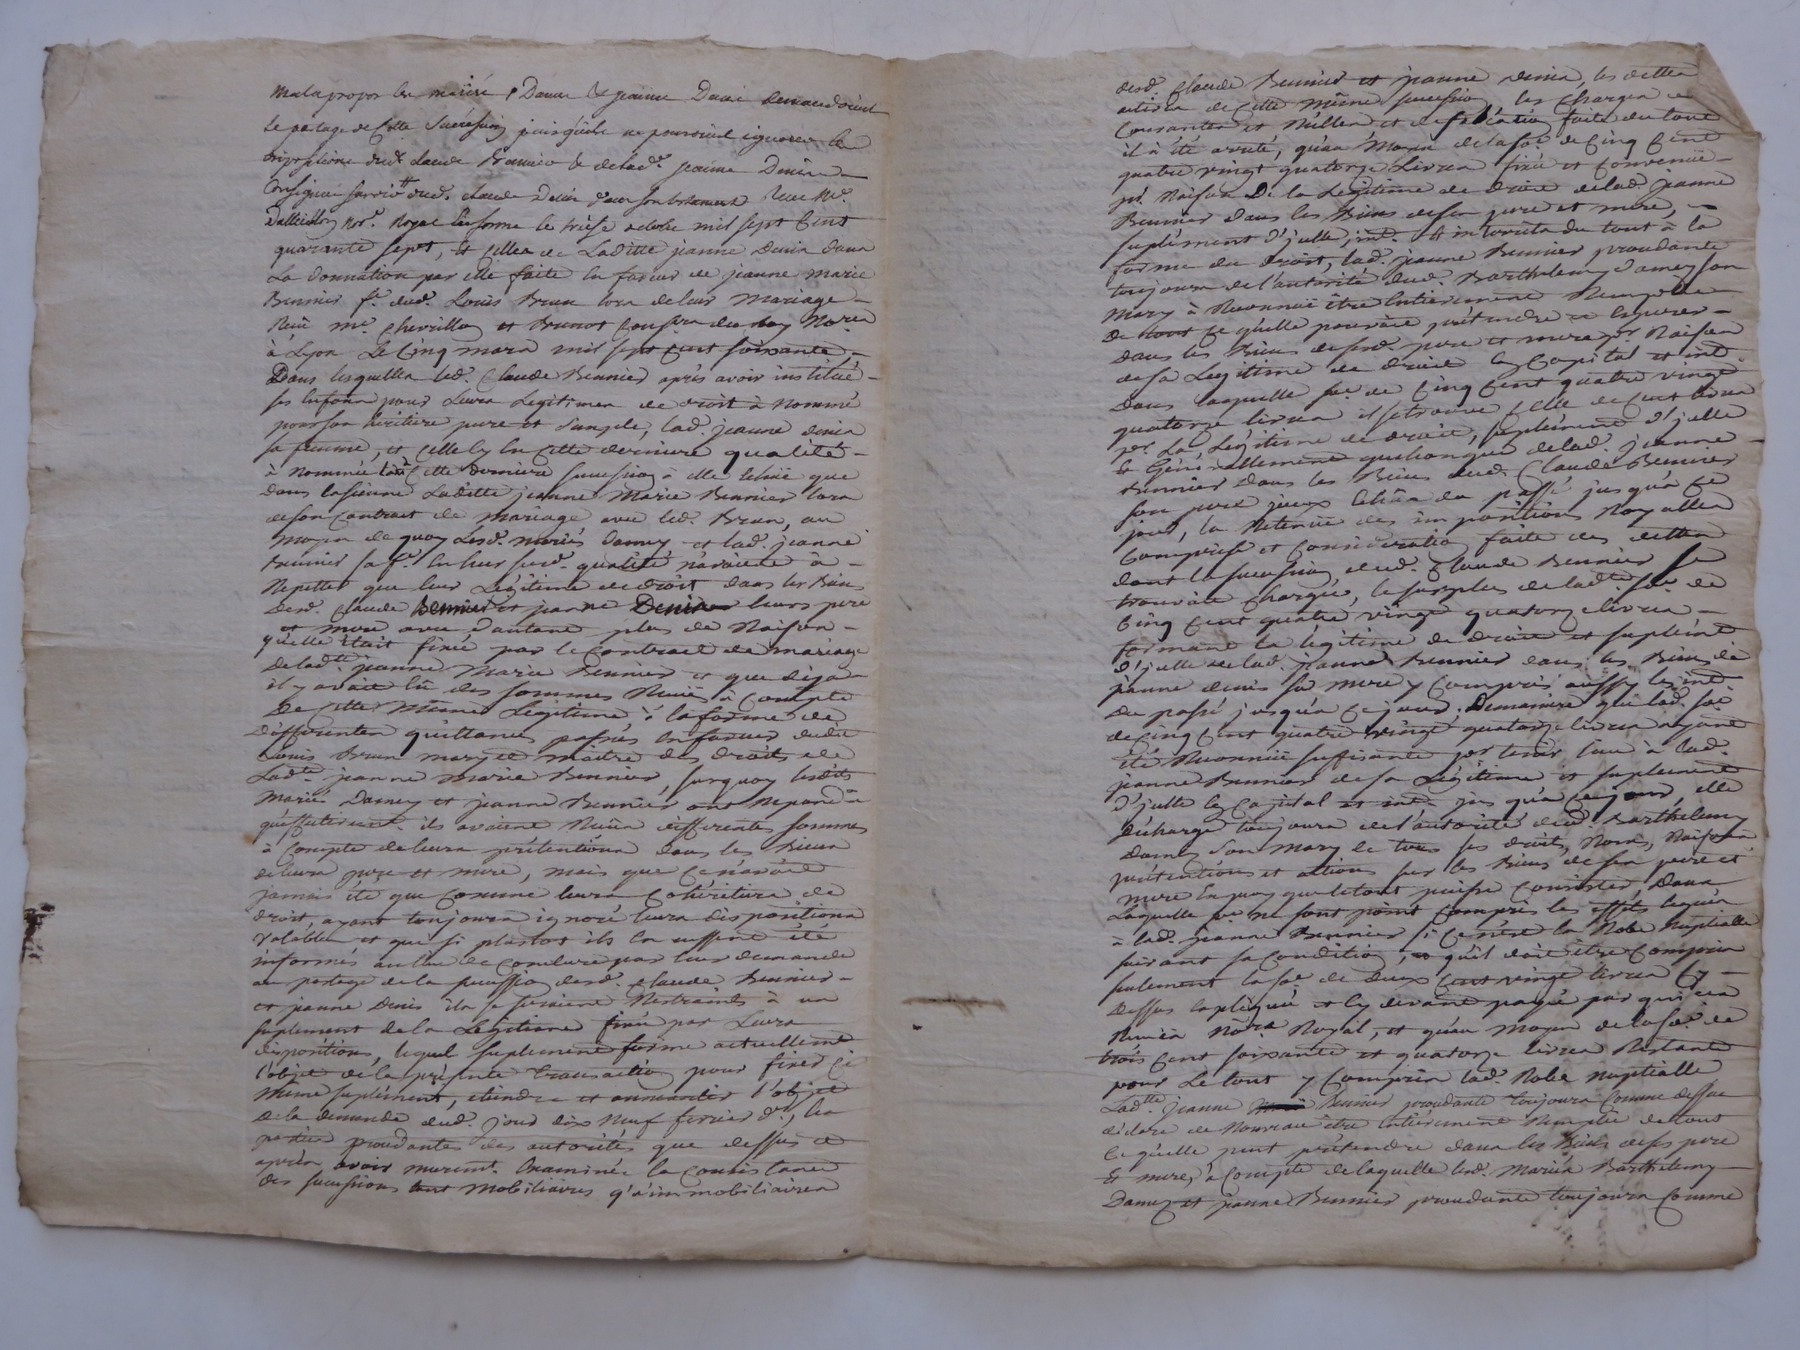 mal a propos les mariés Damey & jeanne demandoient
le partage de Cette Succession puisqu'ils ne pouvoient ignorer les
dispositions dud. claude Bennier & de lad. jeanne Denis
Consignées dud. claude dans son testament Reçu Me.
Not. Royal le treise octobre mil sept Cent
quarante sept, Et Celles de Laditte jeanne Denis dans
La donnation par elle faite en faveur de jeanne Marie
Bennier f.e dud. Louis Brun lors de leur Mariage
Reçu me. Chevrillon et Brunot du Roy No.res
à Lyon Le Cinq mars mil sept Cent soixante,
Dans lesquelles led. Claude Bennier après avoir institué
ses Enfans pour Leurs Legitimes de droit à Nommé
pour son héritiere pure et simple, lad. jeanne denis
sa femme, et Celle Cy en Cette derniere qualité
à Nommé Cette derniere succession à elle que
dans la sienne Laditte jeanne Marie Bennier lors
de son Contract de mariage avec led. Brun, au
moyen de quoy Lesd. mariés damey et lad. jeanne
Bennier sa f.e En leur susd. qualité à
Repetter que leur Légitime de droit dans les Biens
desd. Claude Bennier et jeanne Denis leurs pere
et mere avec d'autant plus de Raison
qu'elle était fixée par le Contract de mariage
de lad.tte jeanne Marie Bennier et que déja
il y avoit Eû des sommes Reçuë à Compte
de Cette Même Légitime, à la forme de
differentes quittances passées En faveur dudit
Louis Brun mary et maitre des droits de
Lad.tte jeanne Marie Bennier, surquoy lesdits
Mariés Damey et jeanne Bennier ont Repondu
qu'effectivement ils avoient Reçûs differentes sommes
à Compte de leurs prétentions dans les Biens
de leurs pere et mere, mais que Ce n'avoit
jamais été que Comme leurs Cohéritiers de
droit, ayant toujours ignoré leurs dispositions
Valables et que si plustot ils En eussent été
informés au lieu de Conclure par leur demande
au partage de la succession desd. Claude Bennier
et jeanne Denis ils se seroient Restraints à un
suplement de la Legitime fixée par Leurs
dispositions, lequel suplement forme actuellement
l'objet de la présente transaction pour fixer Ce
même suplément, éteindre et l'objet
de la demande dud. jour dix Neuf fevrier d.er, les
parties proccedantes des autorités que dessus et
après avoir murem.t Examinée la Consistance
des succession tant Mobiliaires qu'immobiliaires
desd. Claude Bennier et jeanne denis, les dettes
actives de Cette même succession les Charges
Courantes et Réelles et deffalcation faite du tout
il à été areté, qu'au Moyen de la so.e de Cinq Cent
quatre vingt quatorze Livres fixée et Convenuë
p.r Raison De la Legitime de droit de lad. jeanne
Bennier dans les Biens de ses pere et mere,
suplément d'icelle, int. et interets du tout à la
forme du droit, lad. jeanne Bennier proccedante
toujours de l'autorité dud. Barthelemy Damey son
Mary à Reconnuë être Entierement Remplie
de tout Ce qu'elle pouvoit prétendre et Esperer
dans les Biens de sesd. pere et mere p.r Raison
de sa Legitime de droit En Capital et int.
Dans laquelle so.e de Cinq Cent quatre vingt
quatorze livres il se trouve Celle de Cent livres
p.r La Légitime de droit, suplément d'icelle
Et Généralement quelconque de lad. jeanne
Bennier dans les Biens dud. Claude Bennier
son pere jusqu'à Ce
jour, la Retenuë des impositions Royalles
Comprise et Considération faite des dettes
dont la succession dud. Claude Bennier se
trouvoit Chargée, le surplus de lad.te so.e de
Cinq Cent quatre vingt quatorze livres
formant la legitime de droit et suplément
d'icelle de lad. jeanne Bennier dans les Biens de
jeanne denis sa mere y Compris aussy les int.
du passé jusqu'à Ce jour. Demaniere que lad. so.e
de Cinq Cent quatre vingt quatorze livres ayant
été Reconnuë suffisante por tenir lieu à lad.
jeanne Bennier de sa Legitime et suplement
d'icelle En Capital et int. jusqu'à Ce jour, elle
décharge toujours de l'autorité dud. Barthelemy
damey son mary de tous ses droits, Noms, Raisons
prétentions et actions sur les Biens de ses pere et
mere En quoy que le tout puisse Consister, dans
Laquelle so.e ne sont point Compris les effets legués
à lad. jeanne Bennier, si Ce n'est la Robe nuptialle
suivant sa Condition, et qu'il doit être Compris
seulement la so.e de deux Cent vingt livres Cy
dessus Expliquée et Cy devant payée par quittances
Reçuës No.res Royal, et qu'au moyen de la so.e de
trois Cent soixante et quatorze livres Restante
pour Le tout y Compris lad. Robe nuptialle
Lad.tte jeanne Bennier proccedante toujours Comme dessus
déclare de Nouveau être Entierement Remplie de tout
Ce qu'elle peut prétendre dans les Biens de ses pere
Et mere, à Compte de laquelle lesd. Mariés Barthelemy
Damey et jeanne Bennier proccedante toujours Comme